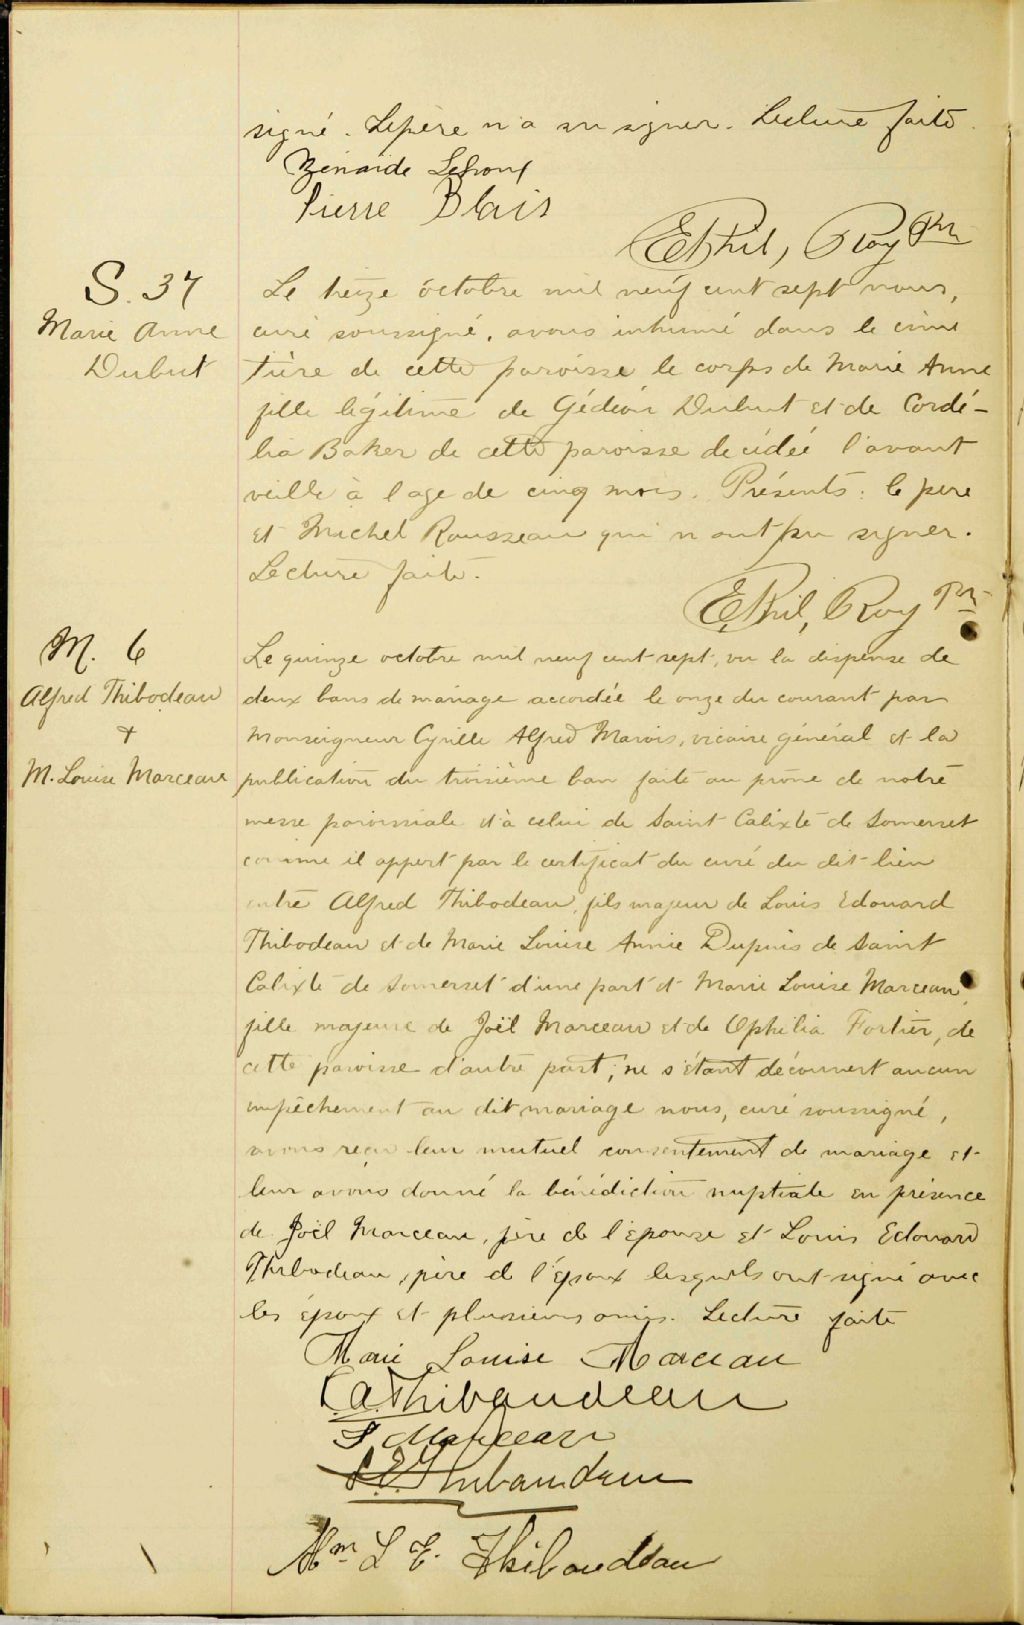 signé. Le père n'a su signer. Lecture faite.
Zénaide
Pierre Blais
E Phil, Roy Ptre
S. 37
Marie Anne
Dubut
Le treize octobre mil neuf cent sept nous,
curé soussigné, avons inhumé dans le cime
tière de cette paroisse le corps de Marie Anne
fille légitime de Gédéon Dubut et de Cordé-
lia Baker de cette paroisse décédée l'avant
veille à l'age de cinq mois. Présents: le père
et Michel Rousseau qui n'ont pu signer.
Lecture faite.
E. Phil, Roy Ptre
M. 6
Alfred Thibodeau
+
M. Louise Marceau
Le quinze octobre mil neuf cent sept, vu la dispense de
deux bans de mariage accordée le onze du courant par
Monseigneur Cyrille Alfred Marois, vicaire général et la
publication du troisième ban faite au prône de notre
messe paroissiale et à celui de Saint Calixte de Somerset
comme il appert par le certificat du curé du dit lieu
entre Alfred Thibodeau, fils majeur de Louis Edouard
Thibodeau et de Marie Louise Annie Dupuis de Saint
Calixte de Somerset d'une part et Marie Louise Marceau,
fille majeure de Joël Marceau et de Ophilia Fortier, de
cette paroisse d'autre part; ne s'étant découvert aucun
empêchement au dit mariage nous, curé soussigné,
avons reçu leur mutuel consentement de mariage et
leur avons donné la bénédiction nuptiale en présence
de Joël Marceau, père de l'épouse et Louis Edouard
Thibodeau, père de l'époux lesquels ont signé avec
les époux et plusieurs amis. Lecture faite
Marie Louise Marceau
A. Thibaudeau
J Marceau
L. E. Thibaudeau
Mm L E. Thibaudeau